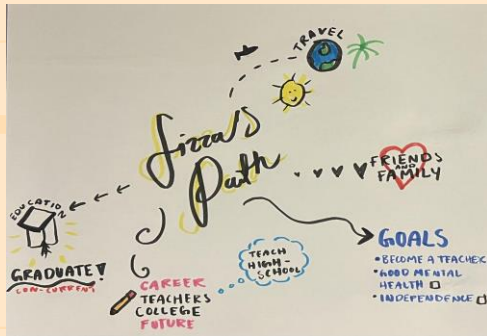 TRAVEL
Fizza's
Path
FRIENDS
AND
FAMILY
EDUCATION
GRADUATE!
CON-CURRENT
CAREER
TEACHERS
COLLEGE
FUTURE
TEACH
HIGH-
SCHOOL
GOALS
• BECOME A TEACHER
• GOOD MENTAL
HEALTH
• INDEPENDENCE